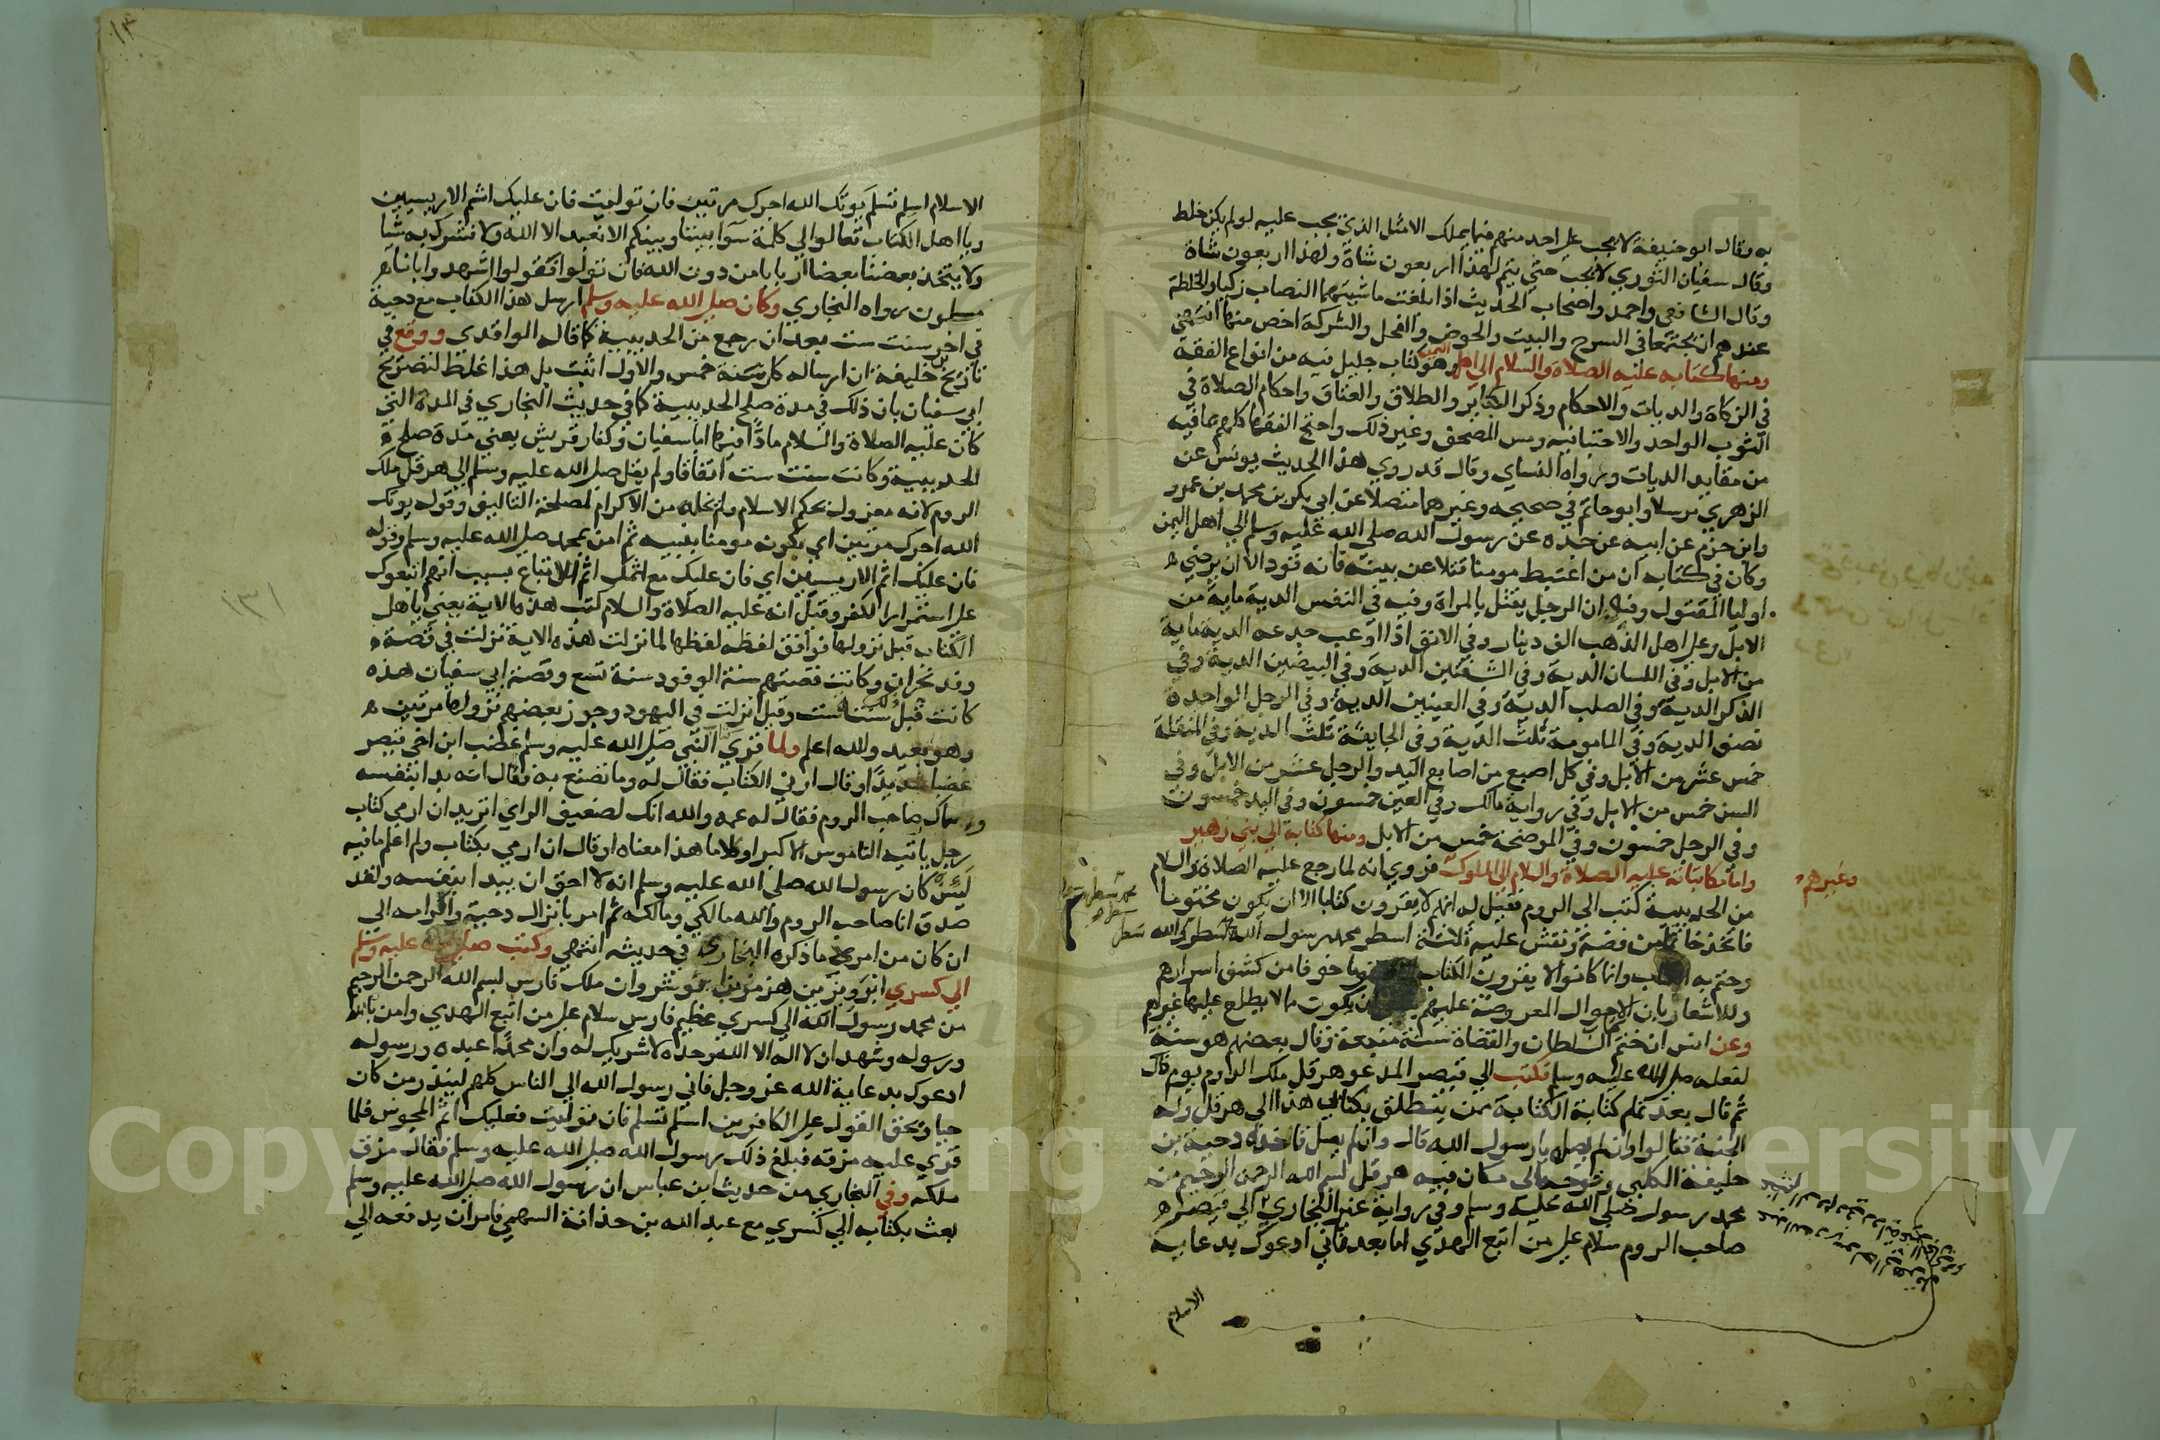 به وقال ابو حنيفة لا يجب على احد منهم فيما يملك الا مثل الذي يجب عليه لو لم يكن خلط
وقال سفيان الثوري لا يجب حتى يتم لهذا اربعون شاة ولهذا اربعون شاة
وقال الشافعي واحمد واصحاب الحديث اذا بلغت ماشيتهما النصاب زكيا والخلطة
عندهم ان يجتمعا في السرح والبيت والحوض والفحل والشركة اخص منها انتهى
ومنها كتابه عليه الصلاة والسلام الى اهل اليمن وهو كتاب جليل فيه من انواع الفقه
في الزكاة والديات والاحكام وذكر الكبائر والطلاق والعتاق واحكام الصلاة في
الثوب الواحد والاحتبا فيه ومس المصحف وغير ذلك واحتج الفقها كلهم بما فيه
من مقادير الديات ورواه النساي وقال قد روي هذا الحديث يونس عن
الزهري مرسلا وابو حاتم في صحيحه وغيرهما متصلا عن ابي بكر بن محمد بن عمرو
وابن حزم عن ابيه عن جده عن رسول الله صلى الله عليه وسلم الى اهل اليمن
وكان في كتابه ان من اعتبط مومنا قتلا عن بينة فانه قود الا ان يرضى
اوليا المقتول وفيه ان الرجل يقتل بالمراة وفيه في النفس الدية ماية من
الابل وعلى اهل الذهب الف دينار وفي الانف اذا اوعب جدعه الدية ماية
من الابل وفي اللسان الدية وفي الشفتين الدية وفي البيضين الدية وفي
الذكر الدية وفي الصلب الدية وفي العينين الدية وفي الرجل الواحدة
نصف الدية وفي المامومة ثلث الدية وفي الجايفة ثلث الدية وفي المنقلة
خمس عشر من الابل وفي كل اصبع من اصابع اليد والرجل عشر من الابل وفي
السن خمس من الابل وفي رواية مالك وفي العين خمسون وفي اليد خمسون
وفي الرجل خمسون وفي الموضحة خمس من الابل ومنها كتابه الى بني زهير
واما مكاتباته عليه الصلاة والسلام الى الملوك وغيرهم فروي انه لما رجع عليه الصلاة والسلام
من الحديبية كتب الى الروم فقيل له انهم لا يقرون كتابا الا ان يكون مختوما
فاتخذ خاتما من فضة ونقش عليه ثلاثة اسطر محمد رسول الله
محمد سطر رسول
سطر
سطر
وختم به الكتاب وانما كانوا لا يقرون الكتاب خوفا من كشف اسرارهم
وللاشعار بان الاحوال المعروضة عليهم ان يكون مما لا يطلع عليها غيرهم
وعن انس ان ختم السلطان والقضاة سنة متبعة وقال بعضهم هو سنة
لفعله صلى الله عليه وسلم فكتب الى قيصر المدعو هرقل ملك الروم يوم ذاك
ثم قال بعد تمام كتابة الكتابة من ينطلق بكتابي هذا الى هرقل وله
الجنة فقالوا وان لم يصل يا رسول الله قال وان لم يصل فاخذه دحية بن
خليفة الكلبي وتوجه الى مكان فيه هرقل بسم الله الرحمن الرحيم من
محمد رسول الله صلى الله عليه وسلم وفي رواية غير البخاري الى قيصر
صاحب الروم سلام على من اتبع الهدى اما بعد فاني ادعوك بدعاية
الاسلام
الاسلام اسلم تسلم يوتك الله اجرك مرتين فان توليت فان عليك اثم الاريسيين
ويا اهل الكتاب تعالوا الى كلمة سوا بيننا وبينكم الا نعبد الا الله ولا نشرك به شيا
ولا يتخذ بعضنا بعضا اربابا من دون الله فان تولوا فقولوا اشهدوا بانا
مسلمون رواه البخاري وكان صلى الله عليه وسلم ارسل هذا الكتاب مع دحية
في اخر سنت ست بعد ان رجع من الحديبية كما قال الواقدي ووقع في
تاريخ خليفة ان ارساله كان سنة خمس والاول اثبت بل هذا غلط لتصريح
ابي سفيان بان ذلك في مدة صلح الحديبية كما في حديث البخاري في المدة التي
كان عليه الصلاة والسلام مادّ فيها ابا سفيان وكفار قريش يعني مدة صلح
الحديبية وكانت سنت ست اتفاقا ولم يقل صلى الله عليه وسلم الى هرقل ملك
الروم لانه معزول بحكم الاسلام ولم يخله من الاكرام لمصلحة التاليف وقوله يوتك
الله اجرك مرتين اي بكونه مومنا بنبيه ثم امن بمحمد صلى الله عليه وسلم وقوله
فان عليك اثم الاريسيين اي فان عليك مع اثمك اثم الاتباع بسبب انهم اتبعوك
على استمرار الكفر وقيل انه عليه الصلاة والسلام كتب هذه الاية يعني يا اهل
الكتاب قبل نزولها فوافق لفظه لفظها لما نزلت هذه الاية نزلت في قصة
وفد نجران وكانت قصتهم سنة الوفود سنة تسع وقصة ابي سفيان هذه
كانت قبل ذلك سنة ست وقيل انزلت في اليهود وجوز بعضهم نزولها مرتين
وهو بعيد والله اعلم ولما قري النبي صلى الله عليه وسلم غضب ابن اخي قيصر
غضبا شديدا وقال ارني الكتاب فقال له وما تصنع به فقال انه بدا بنفسه
وسماك صاحب الروم فقال له عمه والله انك لضعيف الراي اتريد ان ارمي كتاب
رجل ياتيه الناموس الاكبر او كلاما هذا معناه او قال ان ارمي بكتاب ولم اعلم ما فيه
لين كان رسول الله صلى الله عليه وسلم انه لاحق ان يبدا بنفسه ولقد
صدق انا صاحب الروم والله مالكي ومالكه ثم امر بانزال دحية واكرامه الى
ان كان من امره ما ذكره البخاري في حديثه انتهى وكتب صلى الله عليه وسلم
الى كسرى ابرويز بن هرمز بن انوشروان ملك فارس بسم الله الرحمن الرحيم
من محمد رسول الله الى كسرى عظيم فارس سلام على من اتبع الهدى وامن بالله
ورسوله وشهد ان لا اله الا الله وحده لا شريك له وان محمدا عبده ورسوله
ادعوك بدعاية الله عز وجل فاني رسول الله الى الناس كلهم لينذر من كان
حيا ويحق القول على الكافرين اسلم تسلم فان توليت فعليك اثم المجوس فلما
قري عليه مزقه فبلغ ذلك رسول الله صلى الله عليه وسلم فقال مزق
ملكه وفي البخاري من حديث ابن عباس ان رسول الله صلى الله عليه وسلم
بعث بكتابه الى كسرى مع عبد الله بن حذافة السهمي فامر ان يدفعه الى
Copy King University